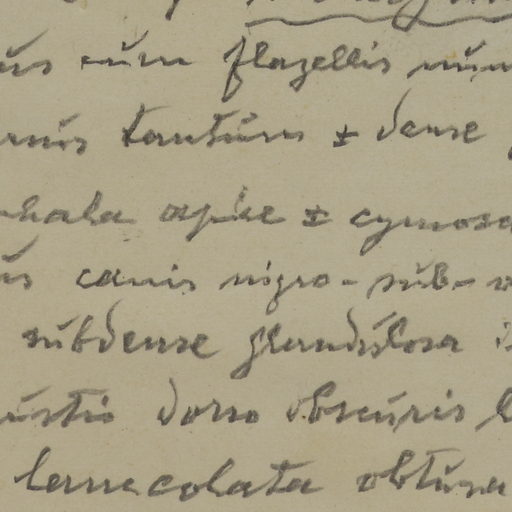 cum flagellis
tantum ± dense
apice ± cymosa
canis nigro-sub-
subdense glandulosa
dorso obscuris
lanceolata obtusa